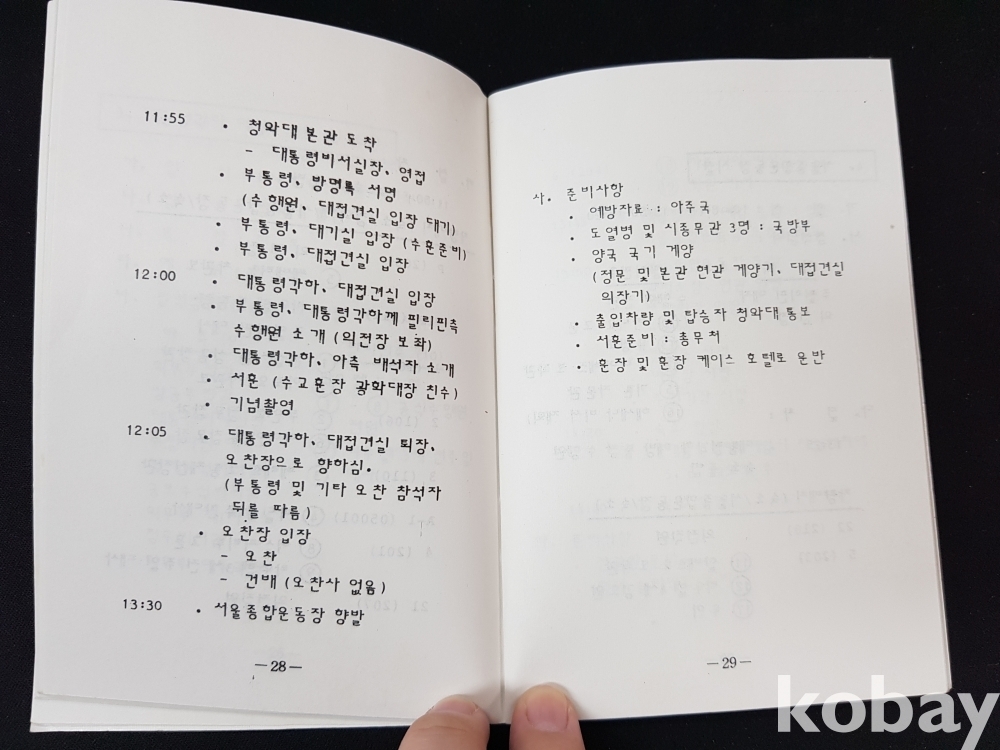 11:55 • 청와대 본관 도착
- 대통령비서실장, 영접
• 부통령, 방명록 서명
(수행원, 대접견실 입장 대기)
• 부통령, 대기실 입장 (수훈준비)
• 부통령, 대접견실 입장
12:00 • 대통령각하, 대접견실 입장
• 부통령, 대통령각하께 필리핀측
수행원 소개 (의전장 보좌)
• 대통령각하, 아측 배석자 소개
• 서훈 (수교훈장 광화대장 친수)
• 기념촬영
12:05 • 대통령각하, 대접견실 퇴장,
오찬장으로 향하심.
(부통령 및 기타 오찬 참석자
뒤를 따름)
• 오찬장 입장
- 오찬
- 건배 (오찬사 없음)
13:30 • 서울종합운동장 향발
—28—
사. 준비사항
• 예방자료 : 아주국
• 도열병 및 시종무관 3명 : 국방부
• 양국 국기 게양
(정문 및 본관 현관 게양기, 대접견실
의장기)
• 출입차량 및 탑승자 청와대 통보
• 서훈준비 : 총무처
• 훈장 및 훈장 케이스 호텔로 운반
—29—
kobay